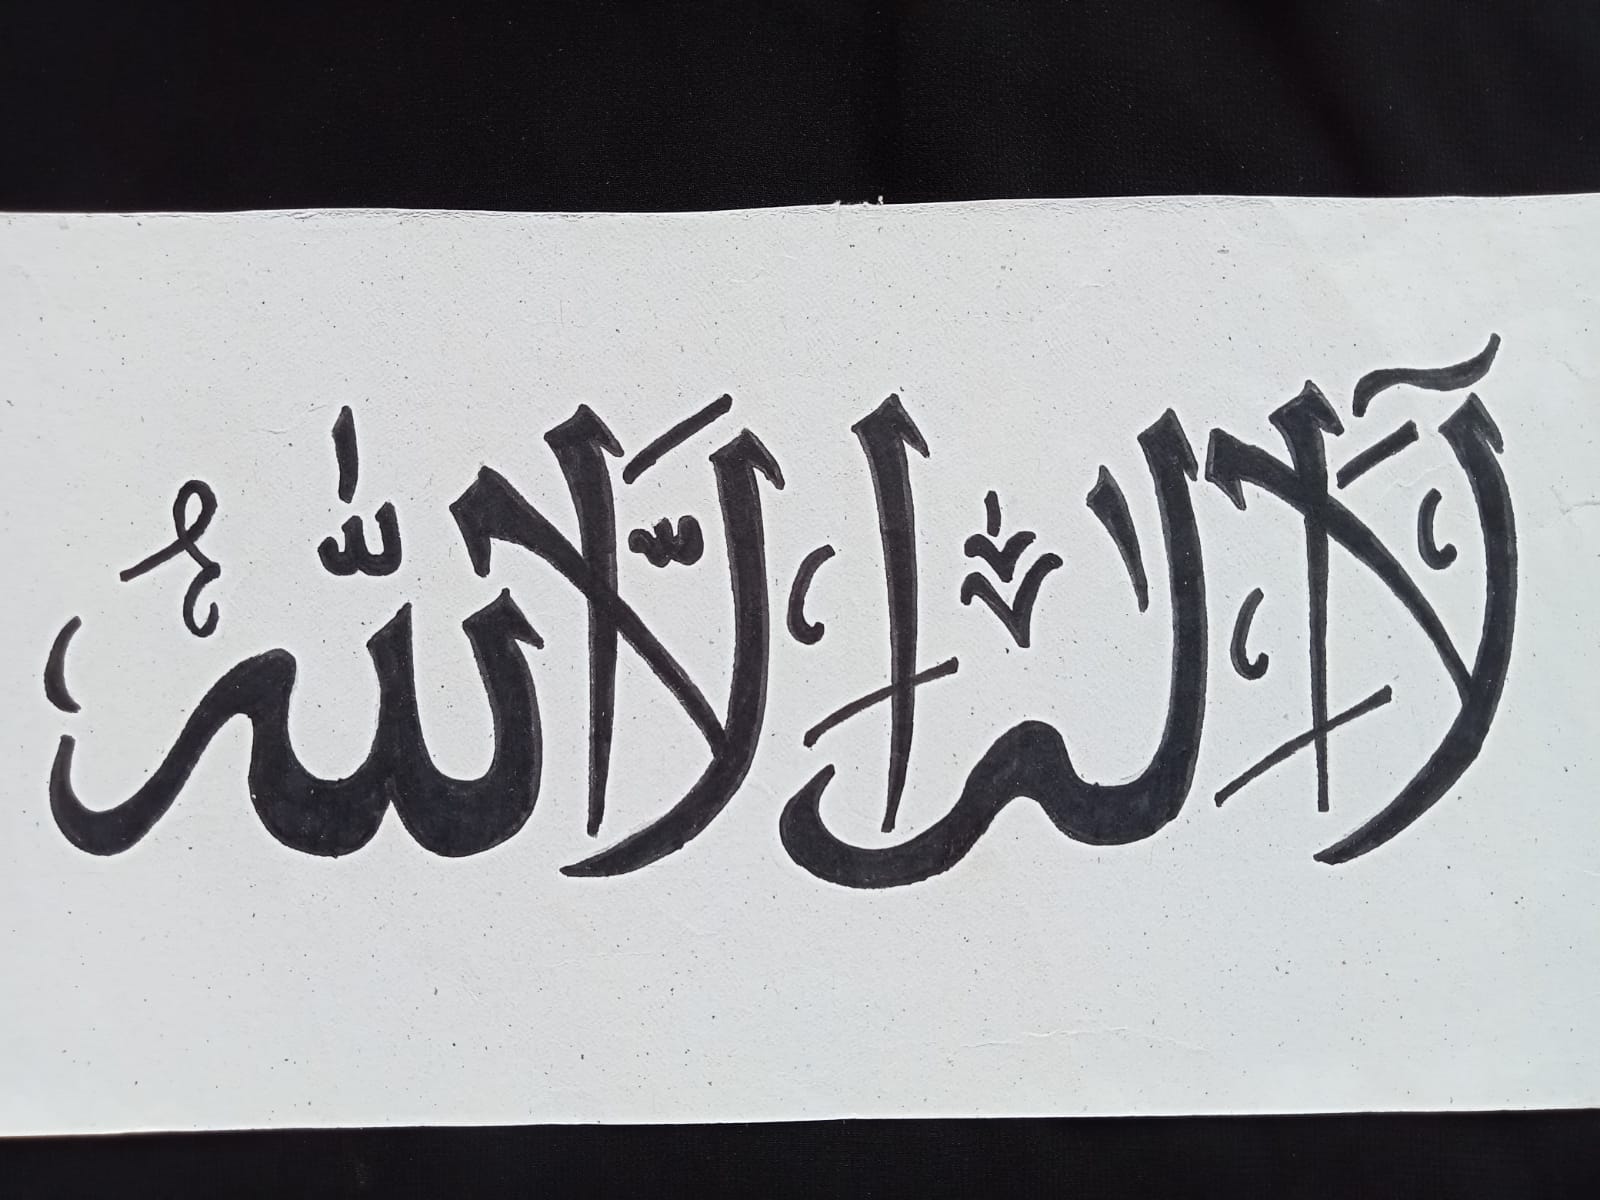 لَآ إِلٰهَ إِلَّا اللّٰهُ